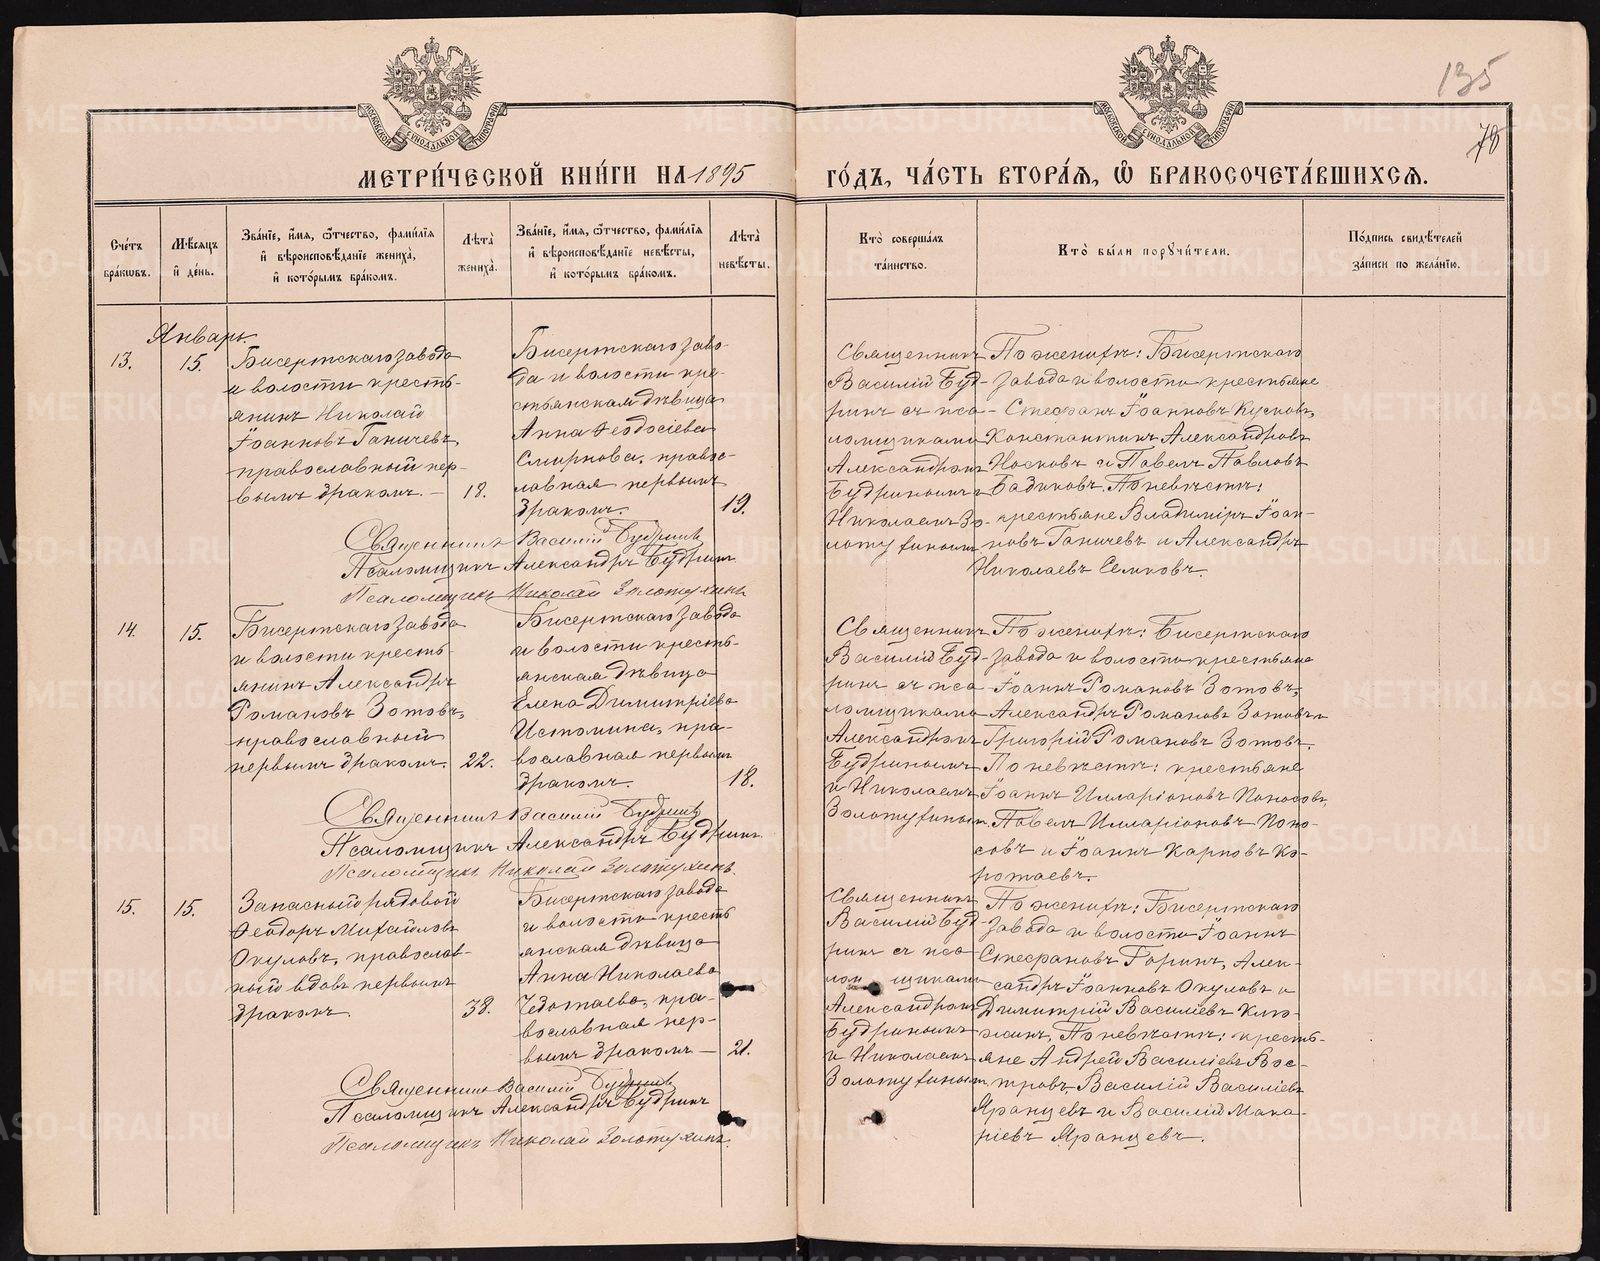 135
78
МЕТРИ́ЧЕСКОЙ КНИ́ГИ НА 1895 ГО́ДЪ, ЧА́СТЬ ВТОРА́Я, Ѽ БРАКОСОЧЕТА́ВШИХСЯ.
Сче́тъ бра́ковъ.
Мѣ́сяцъ и́ день.
Зва́нїе, и́мя, ѻ҆́тчество, фами́лїя и҆ вѣроисповѣ́данїе жениха̀, и҆ кото́рымъ бра́комъ.
Лѣта̀ жениха̀.
Зва́нїе, и́мя, ѻ҆́тчество, фами́лїя и҆ вѣроисповѣ́данїе невѣ́сты, и҆ кото́рымъ бра́комъ.
Лѣта̀ невѣ́сты.
Кто̀ соверша́лъ та́инство.
Кто̀ бы́ли порꙋчи́тели.
По́дпись свидѣ́телей за́писи по жела́нїю.
Январь.
13.
15.
Бисертскаго завода
и волости кресть-
янинъ Николай
Іоанновъ Ганичевъ,
православный пер-
вымъ бракомъ. —
18.
Бисертскаго заво-
да и волости кре-
стьянская дѣвица
Анна Ѳеодосіева
Смирнова, правос-
лавная первымъ
бракомъ.
19.
Священникъ
Василій Буд-
ринъ съ пса-
ломщиками
Александромъ
Будринымъ и
Николаемъ Зо-
лотухинымъ
По женихѣ: Бисертскаго
завода и волости крестьяне
Стефанъ Іоанновъ Кусковъ,
Константинъ Александровъ
Носковъ и Павелъ Павловъ
Бадиковъ. По невѣстѣ:
крестьяне Владиміръ Іоан-
новъ Ганичевъ и Александръ
Николаевъ Семковъ.
Священникъ Василій Будринъ
Псаломщикъ Александръ Будринъ
Псаломщикъ Николай Золотухинъ
14.
15.
Бисертскаго завода
и волости кресть-
янинъ Александръ
Романовъ Зотовъ,
православный
первымъ бракомъ.
22.
Бисертскаго завода
и волости кресть-
янская дѣвица
Елена Димитріева
Истомина, пра-
вославная первымъ
бракомъ.
18.
Священникъ
Василій Буд-
ринъ съ пса
ломщиками
Александромъ
Будринымъ
и Николаемъ
Золотухинымъ.
По женихѣ: Бисертскаго
завода и волости крестьяне
Іоаннъ Романовъ Зотовъ,
Александръ Романовъ Зотовъ и
Григорій Романовъ Зотовъ.
По невѣстѣ: крестьяне
Іоаннъ Илларіоновъ Поносовъ,
Павелъ Илларіоновъ Поно-
совъ и Іоаннъ Карповъ Ко-
ротаевъ.
Священникъ Василій Будринъ
Псаломщикъ Александръ Будринъ.
Псаломщикъ Николай Золотухинъ.
15.
15.
Запасный рядовой
Ѳеодоръ Михайловъ
Окуловъ, православ-
ный вдовъ первымъ
бракомъ
38.
Бисертскаго завода
и волости кресть
янская дѣвица
Анна Николаева
Чеботаева, пра-
вославная пер-
вымъ бракомъ —
21.
Священникъ
Василій Буд-
ринъ съ пса
лом щиками
Александромъ
Будринымъ
и Николаемъ
Золотухинымъ
По женихѣ: Бисертскаго
завода и волости Іоаннъ
Стефановъ Горинъ, Алек-
сандръ Іоанновъ Окуловъ и
Димитрій Василіевъ Клю-
жинъ, По невѣстѣ: кресть-
яне Андрей Василіевъ Вос-
тровъ, Василій Василіевъ
Яранцевъ и Василій Мака-
ріевъ Яранцевъ.
Священникъ Василій Будринъ
Псаломщикъ Александръ Будринъ
Псаломщикъ Николай Золотухинъ.